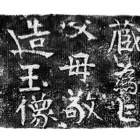 藏為亡
父母敬
造玉像